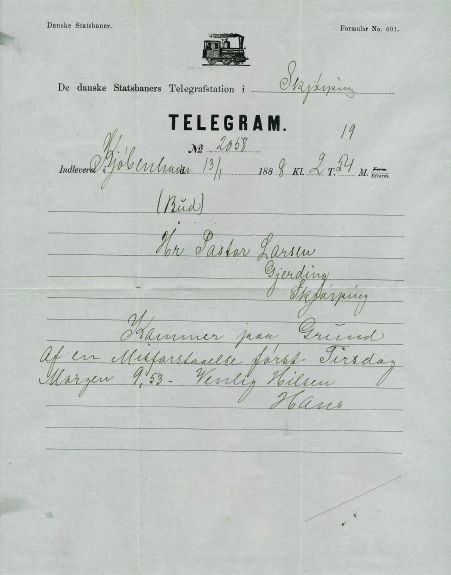 Danske Statsbaner.
Formular No. 601.
De danske Statsbaners Telegrafstation i Skjørping
TELEGRAM.
19
No 2058
Indleveret i Kjøbenhavn d. 13/1 1888 Kl. 2 T. 54 M. Form. Efterm.
(Bud)
Hr Pastor Larsen
Gjerding
Skjørping
Kommer paa Grund
af en Misforstaaelse først Tirsdag
Morgen 9,53 - Venlig Hilsen
Hans